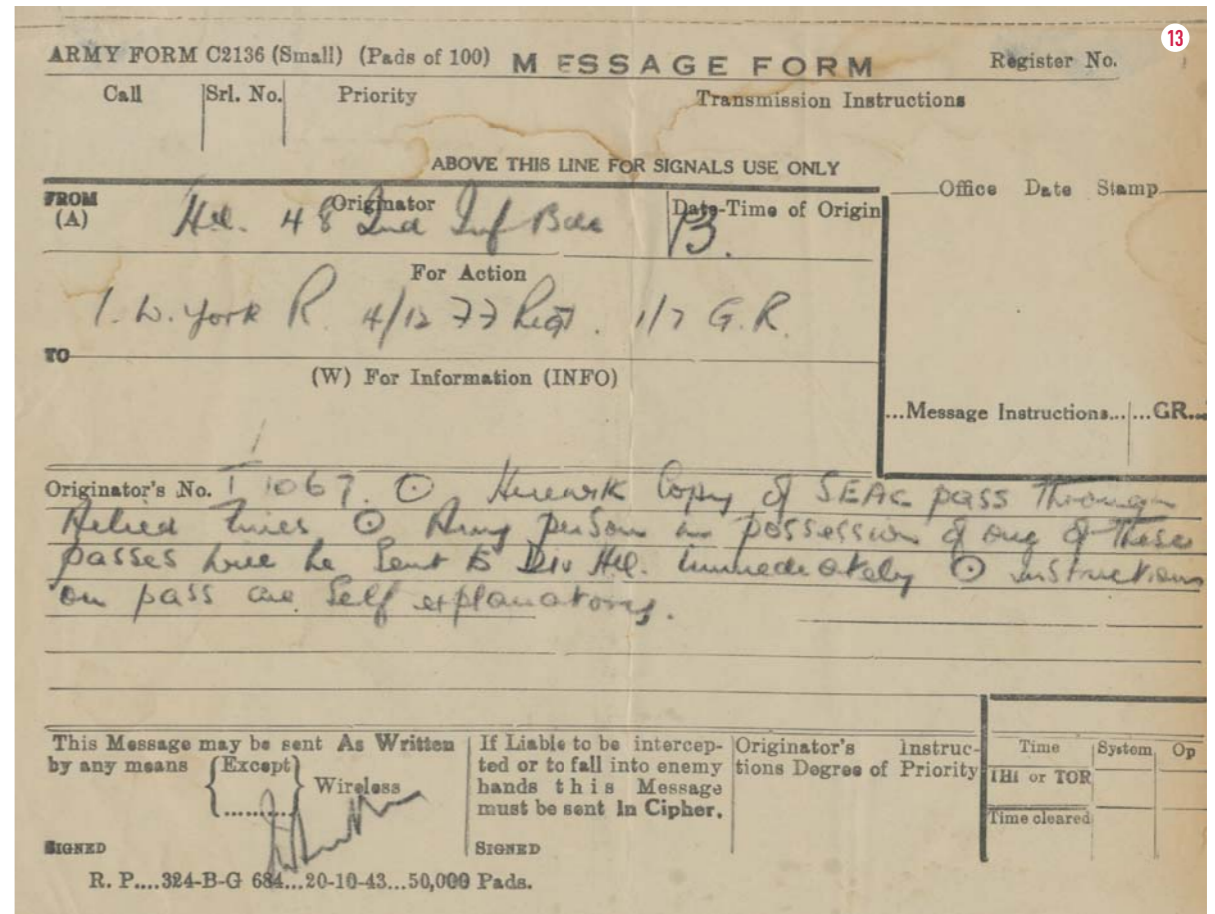 13
ARMY FORM C2136 (Small) (Pads of 100) MESSAGE FORM Register No.
Call Srl. No. Priority Transmission Instructions
ABOVE THIS LINE FOR SIGNALS USE ONLY
Office Date Stamp
FROM (A) Originator Date-Time of Origin
48 Ind Inf Bde 13.
For Action
1. W. York R. 4/12 FF Regt. 1/7 G.R.
TO
(W) For Information (INFO)
...Message Instructions... ...GR...
Originator's No. I 1067. ⊙ Herewith Copy of SEAC pass through
Allied lines ⊙ Any person in possession of one of these
passes will be sent to Div HQ. immediately ⊙ instructions
on pass are self explanatory.
This Message may be sent As Written
by any means {Except} Wireless
{..........}
SIGNED
If Liable to be intercep-
ted or to fall into enemy
hands this Message
must be sent In Cipher.
SIGNED
Originator's Instruc-
tions Degree of Priority
Time System Op
THI or TOR
Time cleared
R. P....324-B-G 684...20-10-43...50,000 Pads.